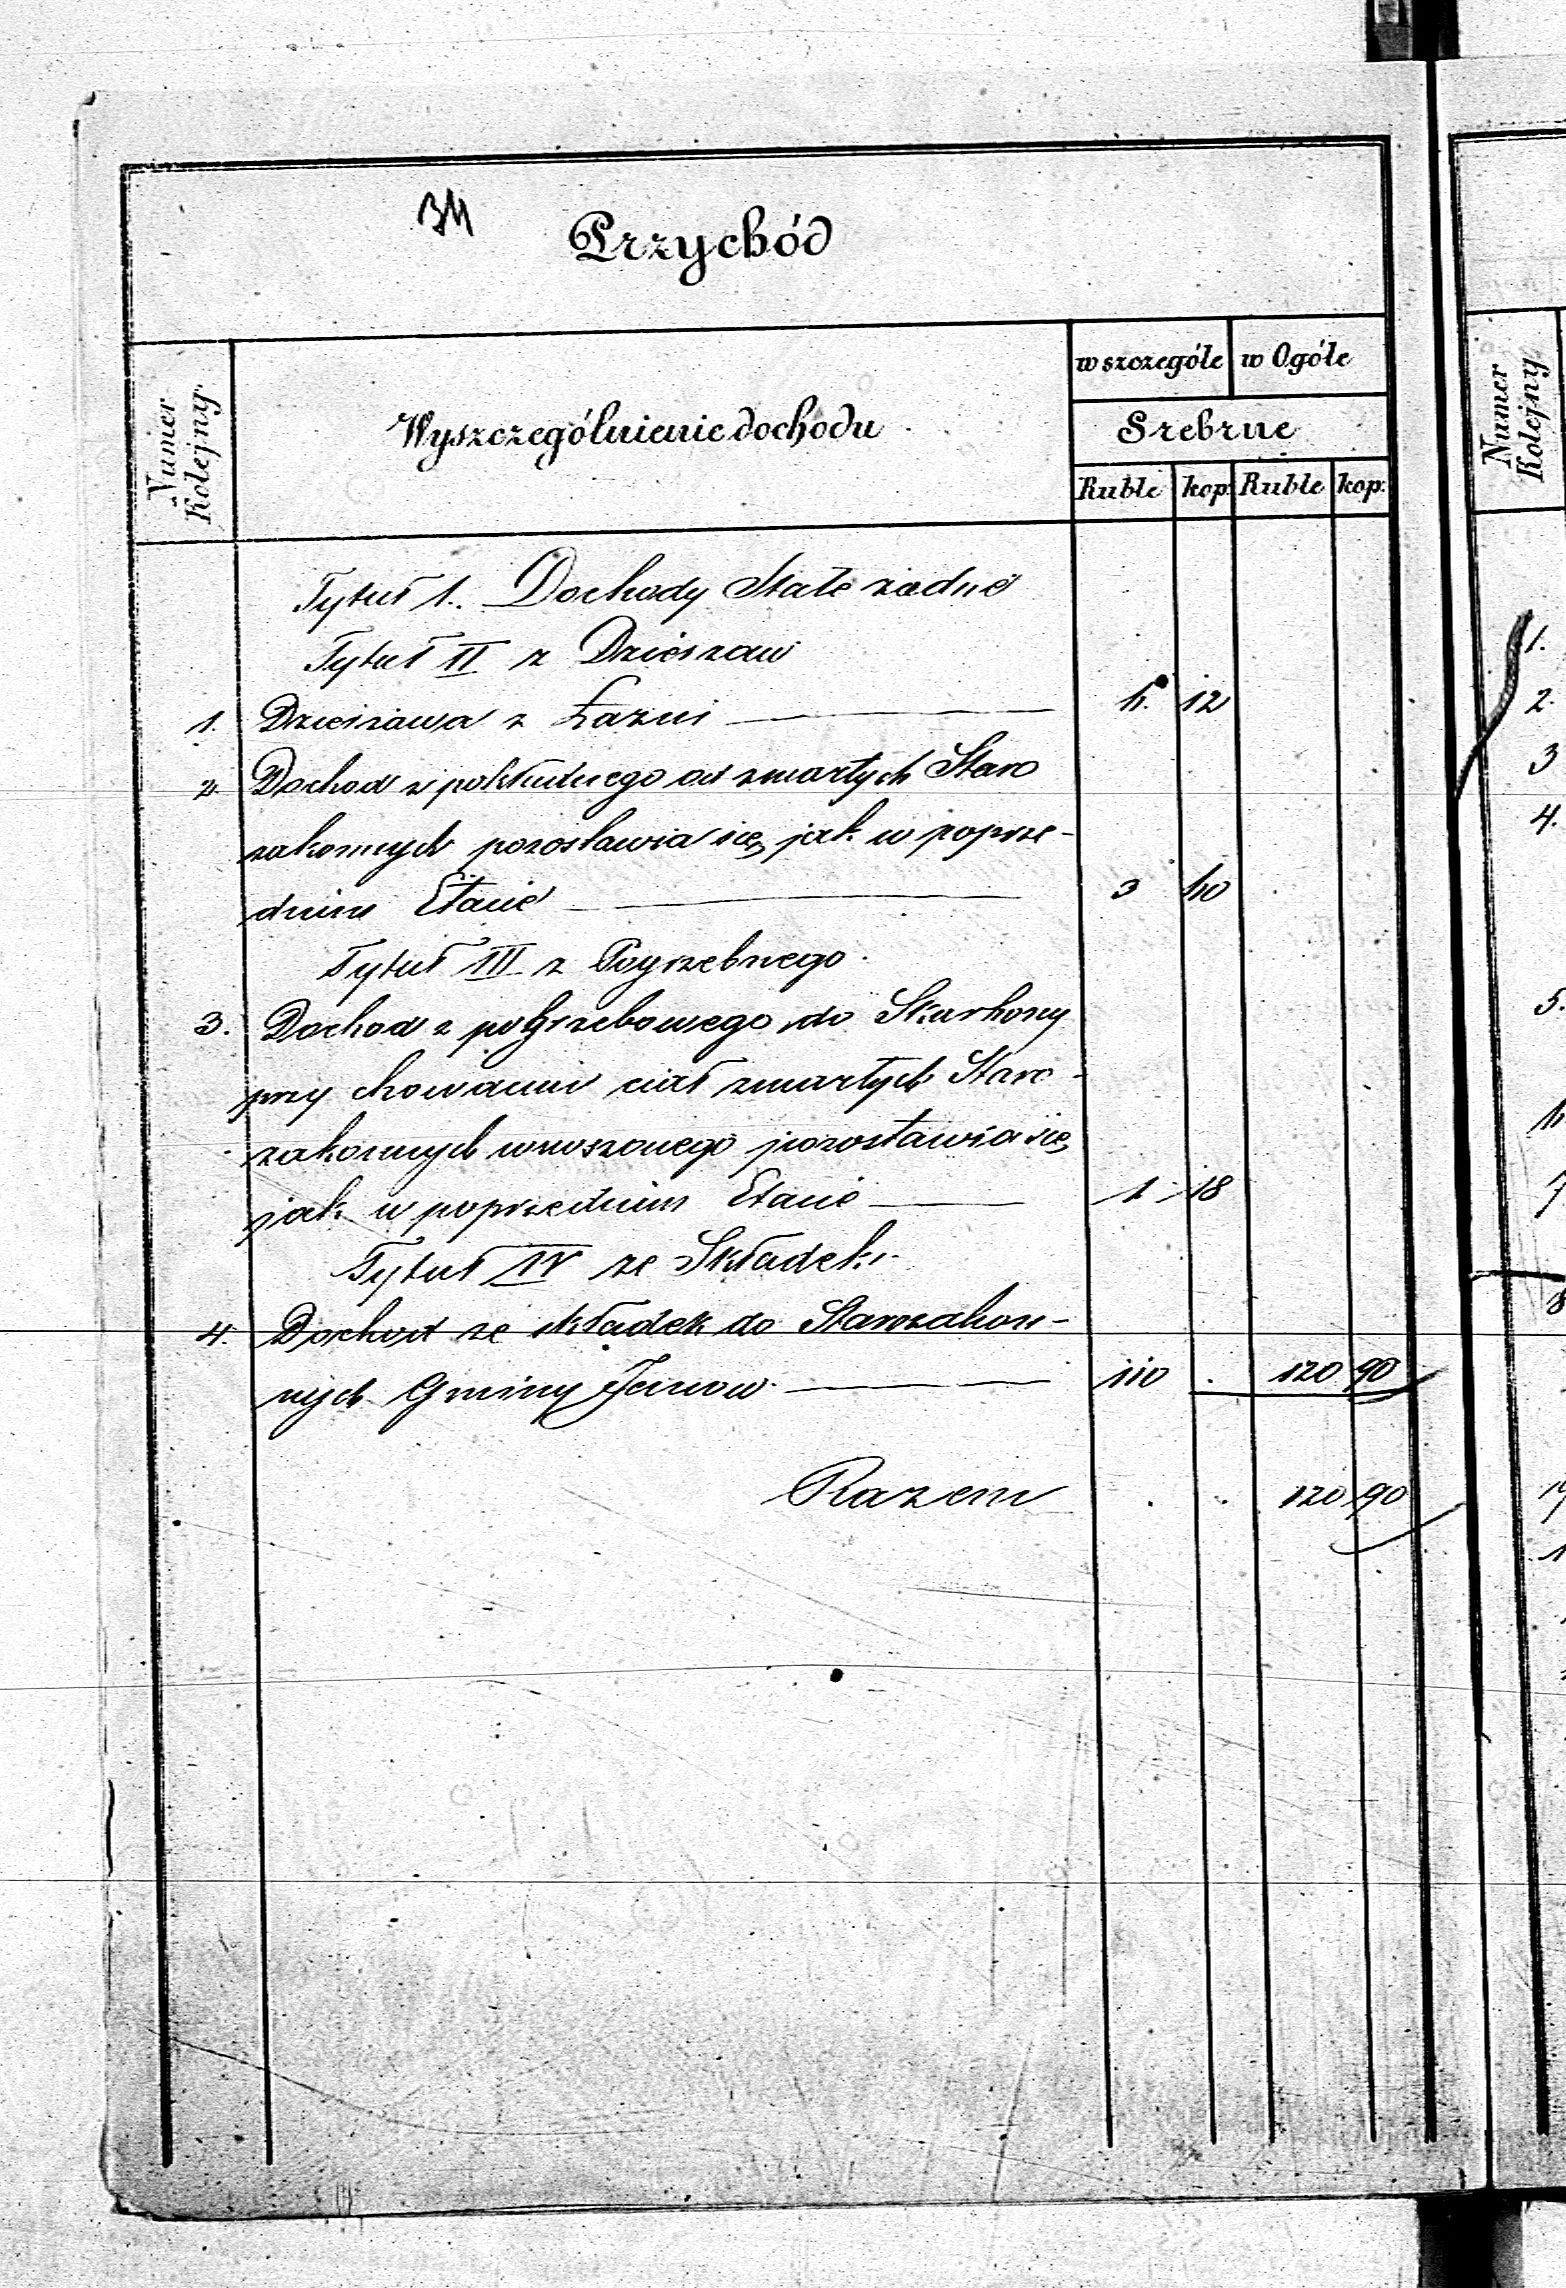 Przychód
Numer Kolejny
Wyszczególnienie dochodu
w szczególe w Ogóle
Srebrne
Ruble kop: Ruble kop:
Tytuł 1. Dochody Stałe żadne
Tytuł II z Dzierżaw
1. Dzierżawa z Łaźni — 6. 12
2. Dochod z pokładnego od zmarłych Staro
zakonnych pozostawia się, jak w poprze-
dnim Etacie — 3 60
Tytuł III z Pogrzebnego.
3. Dochod z pogrzebowego do Skarbony
przy chowaniu ciał zmarłych Staro-
zakonnych wnoszonego pozostawia się
jak w poprzednim Etacie — 1 18
Tytuł IV ze Składek.
4. Dochod ze składek do Starozakon-
nych Gminy Janow — 110 . 120 90
Razem . . 120 90
Numer Kolejny
1.
2.
3
4.
5.
6
7
8